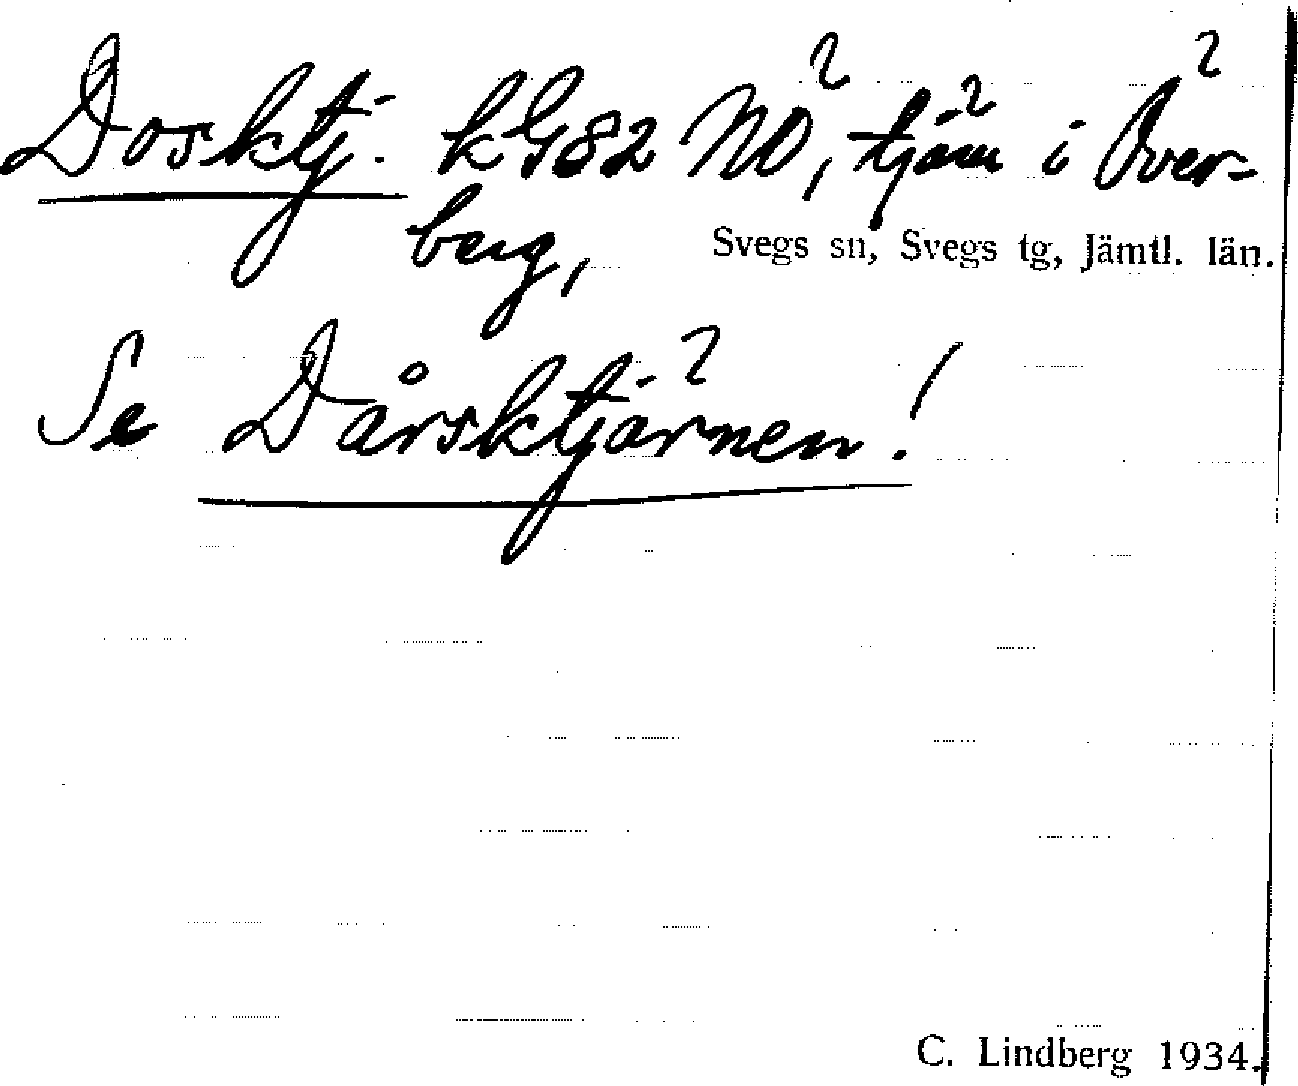 Dosktj. kG82 NÖ, tjärn i Över-
berg, Svegs sn, Svegs tg, Jämtl. län.
Se Dårsktjärnen!
C. Lindberg 1934.